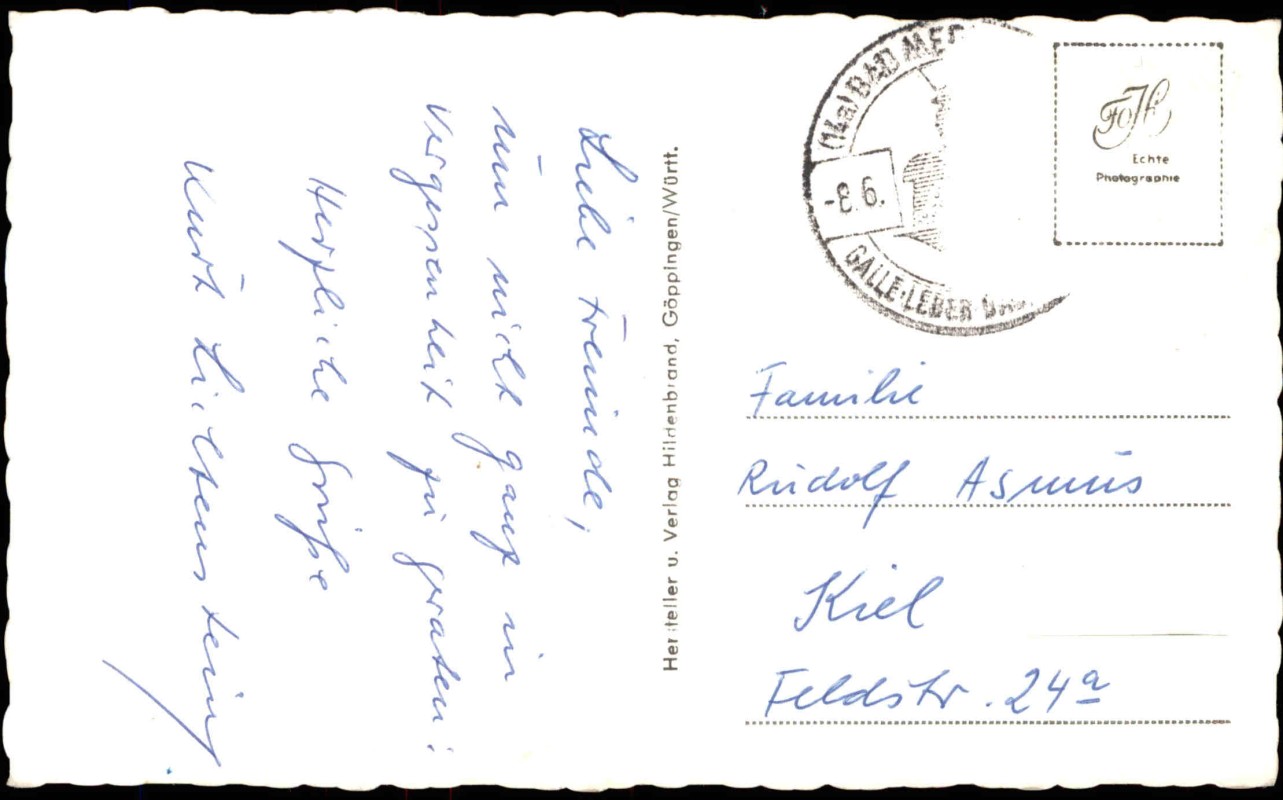 Liebe Freunde,
um nicht ganz in
Vergessenheit zu geraten:
Herzliche Grüße
Kurt
Hersteller u. Verlag Hildenbrand, Göppingen/Württ.
(14a) BAD MER
-8.6.
GALLE·LEBER
Echte
Photographie
Familie
Rudolf Asmus
Kiel
Feldstr. 24a